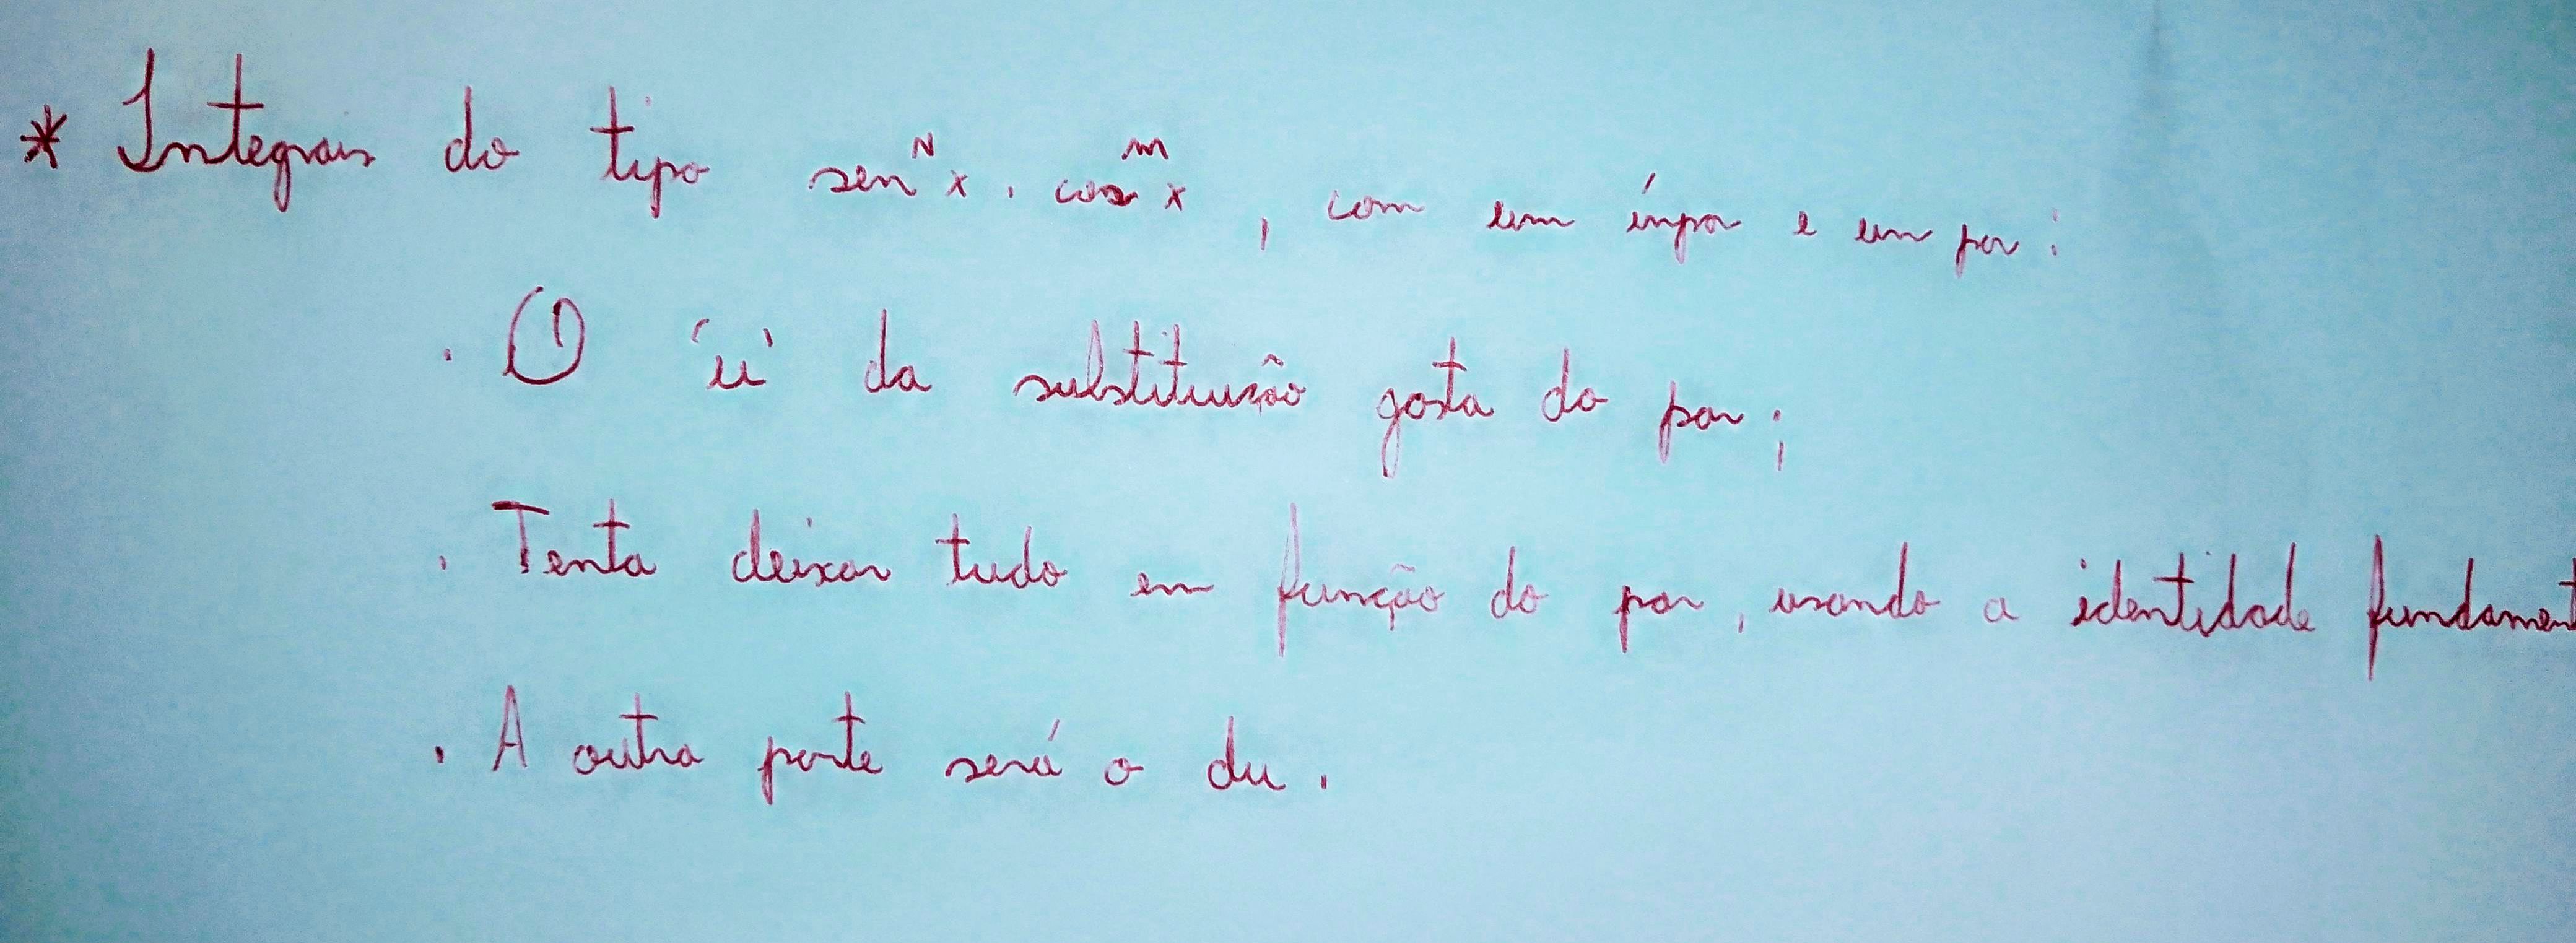 * Integrais do tipo senᴺx . cosᵐx , com um ímpar e um par :
· O 'u' da substituição gosta do par ;
· Tenta deixar tudo em função do par , usando a identidade fundament
· A outra parte será o du .